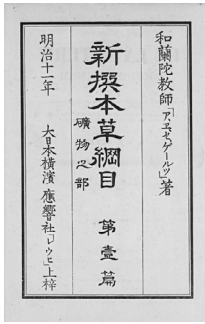 和蘭陀教師「ア、ヰ、セ、ゲールツ」著
新撰本草綱目
礦物之部
第壹篇
明治十一年
大日本横濱 應響社「レウヒ」上梓